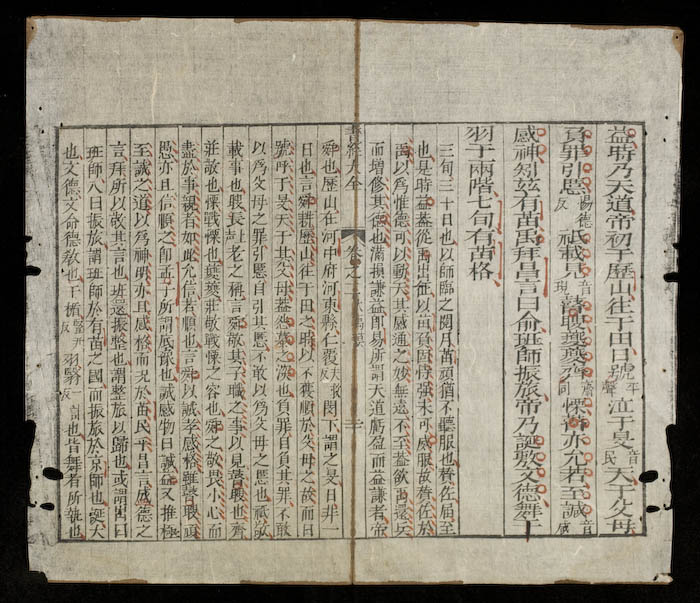 益時乃天道帝初于歷山往于田日號平聲泣于旻音民天于父母
負罪引慝惕德反祗載見音現瞽瞍夔夔齊音齋慄瞽亦允若至諴音咸
感神矧茲有苗禹拜昌言曰俞班師振旅帝乃誕敷文德舞干
羽于兩階七旬有苗格
三旬三十日也以師臨之閱月苗頑猶不聽服也贊佐屆至
也是時益蓋從禹出征以苗負固恃強未可威服故贊佐於
禹以為惟德可以動天其感通之妙無遠不至蓋欲禹還兵
而增修其德也滿損謙益即易所謂天道虧盈而益謙者帝
書經大全 卷之二
舜也歷山在河中府河東縣仁覆閔下謂之旻日非一
日也言舜耕歷山往于田之時以不獲順於父母之故而日
號呼于旻天于其父母蓋怨慕之深也負罪自負其罪不敢
以為父母之罪引慝自引其慝不敢以為父母之慝也祗敬
載事也瞍長老之稱言舜敬其子職之事以見瞽瞍也齊
莊敬也慄戰慄也夔夔莊敬戰慄之容也舜之敬畏小心而
盡於事親者如此允信若順也言舜以誠孝感格雖瞽瞍頑
愚亦且信順之即孟子所謂厎豫也諴感物曰諴益又推極
至諴之道以為神明亦且感格而況於苗民乎昌言盛德之
言拜所以敬其言也班還振整也謂整旅以歸也或謂出曰
班師入曰振旅謂班師於有苗之國而振旅於京師也誕大
也文德文命德教也干楯豎尹反羽翳也皆舞者所執也